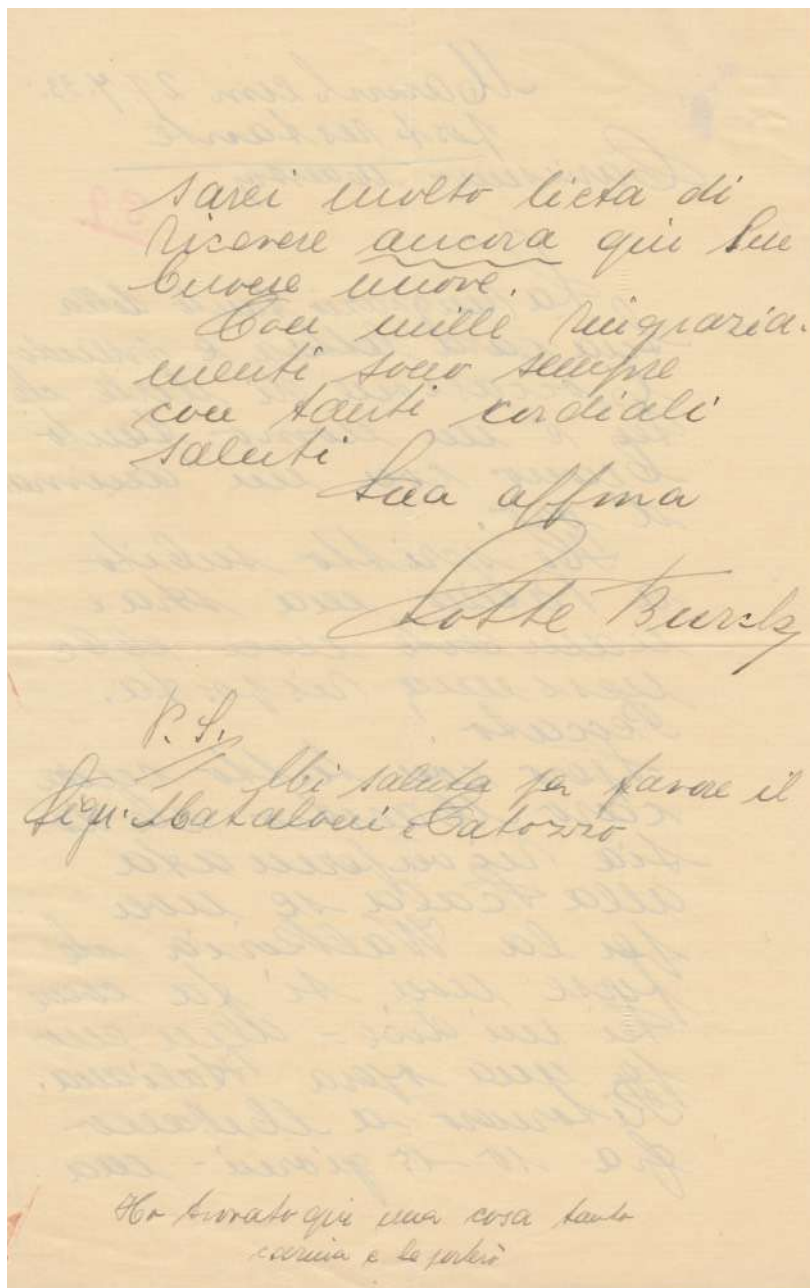 sarei molto lieta di
ricevere ancora qui Sue
buone nuove.
Con mille ringrazia-
menti sono sempre
con tanti cordiali
saluti
Sua affma
Lotte Burck
P.S.
Mi saluta per favore il
Sign. Mataloni e Catozzo
Ho trovato qui una cosa tanto
carina e la porterò